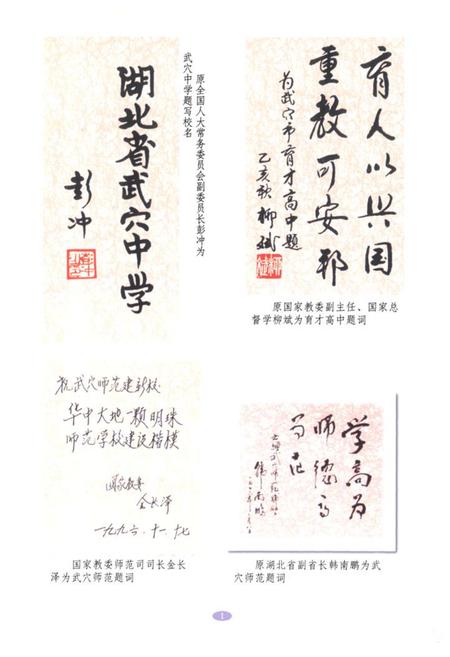 湖北省武穴中学
彭冲
原全国人大常务委员会副委员长彭冲为
武穴中学题写校名
育人以兴国
重教可安邦
为武穴市育才高中题
乙亥秋 柳斌
原国家教委副主任、国家总
督学柳斌为育才高中题词
祝武穴师范建新校:
华中大地一颗明珠
师范学校建设楷模
国家教委
金长泽
一九九六.十一.十七
国家教委师范司司长金长
泽为武穴师范题词
学高为
师德高
为范
韩南鹏
原湖北省副省长韩南鹏为武
穴师范题词
1